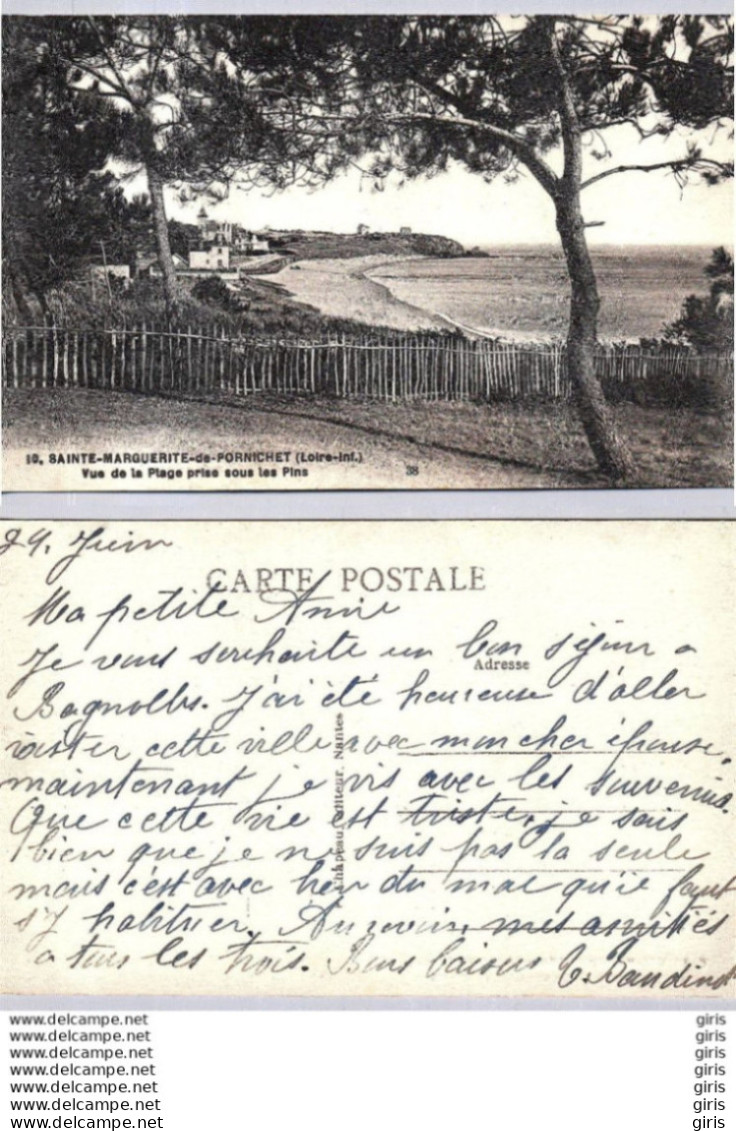 10. SAINTE-MARGUERITE-de-PORNICHET (Loire-Inf.)
Vue de la Plage prise sous les Pins
38
29. Juin
CARTE POSTALE
Ma petite Annie
Je vous souhaite un bon séjour a
Adresse
Bagnolles. J'ai été heureuse d'aller
visiter cette ville avec mon cher épouse,
maintenant je vis avec les souvenirs.
Que cette vie est triste, je sais
bien que je ne suis pas la seule
mais c'est avec heu du mal qu'ie faut
s'y habituer. Au revoir, mes amitiés
a tous les trois. Bons baisers
Chapeau, éditeur, Nantes
www.delcampe.net giris
www.delcampe.net giris
www.delcampe.net giris
www.delcampe.net giris
www.delcampe.net giris
www.delcampe.net giris
www.delcampe.net giris